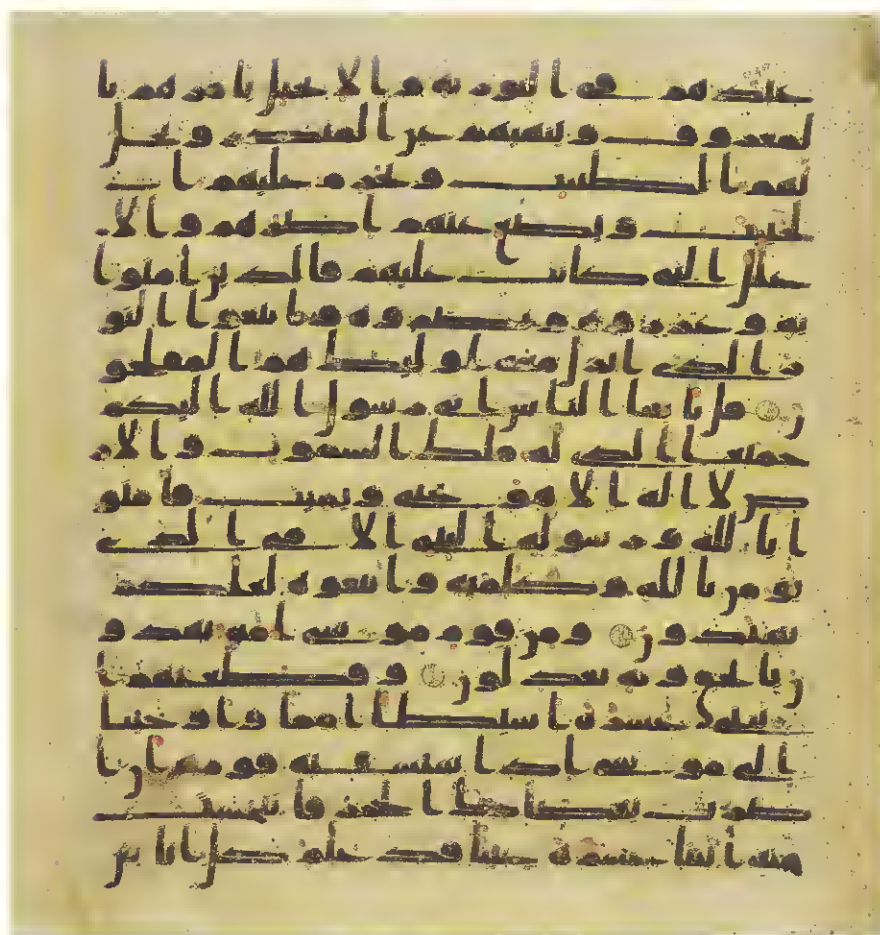 عندهم في التوريه والانجيل يامرهم با
لمعروف وينهيهم عن المنكر ويحل
لهم الطيبت ويحرم عليهم ا
لخبيث ويضع عنهم اصرهم والا
غلل التي كانت عليهم فالذين امنوا
به وعزروه ونصروه واتبعوا النو
ر الذي انزل معه اوليك هم المفلحو
ن قل يايها الناس اني رسول الله اليكم
جميعا الذي له ملك السموت والار
ض لا اله الا هو يحي ويميت فامنو
ا بالله ورسوله النبي الامي الذي
يومن بالله وكلمته واتبعوه لعلكم
تهتدون ومن قوم موسى امه يهدو
ن بالحق وبه يعدلون وقطعنهم ا
ثنتي عشره اسباطا امما واوحينا
الى موسى اذ استسقيه قومه ان ا
ضرب بعصاك الحجر فانبجست
منه اثنتا عشره عينا قد علم كل انا س